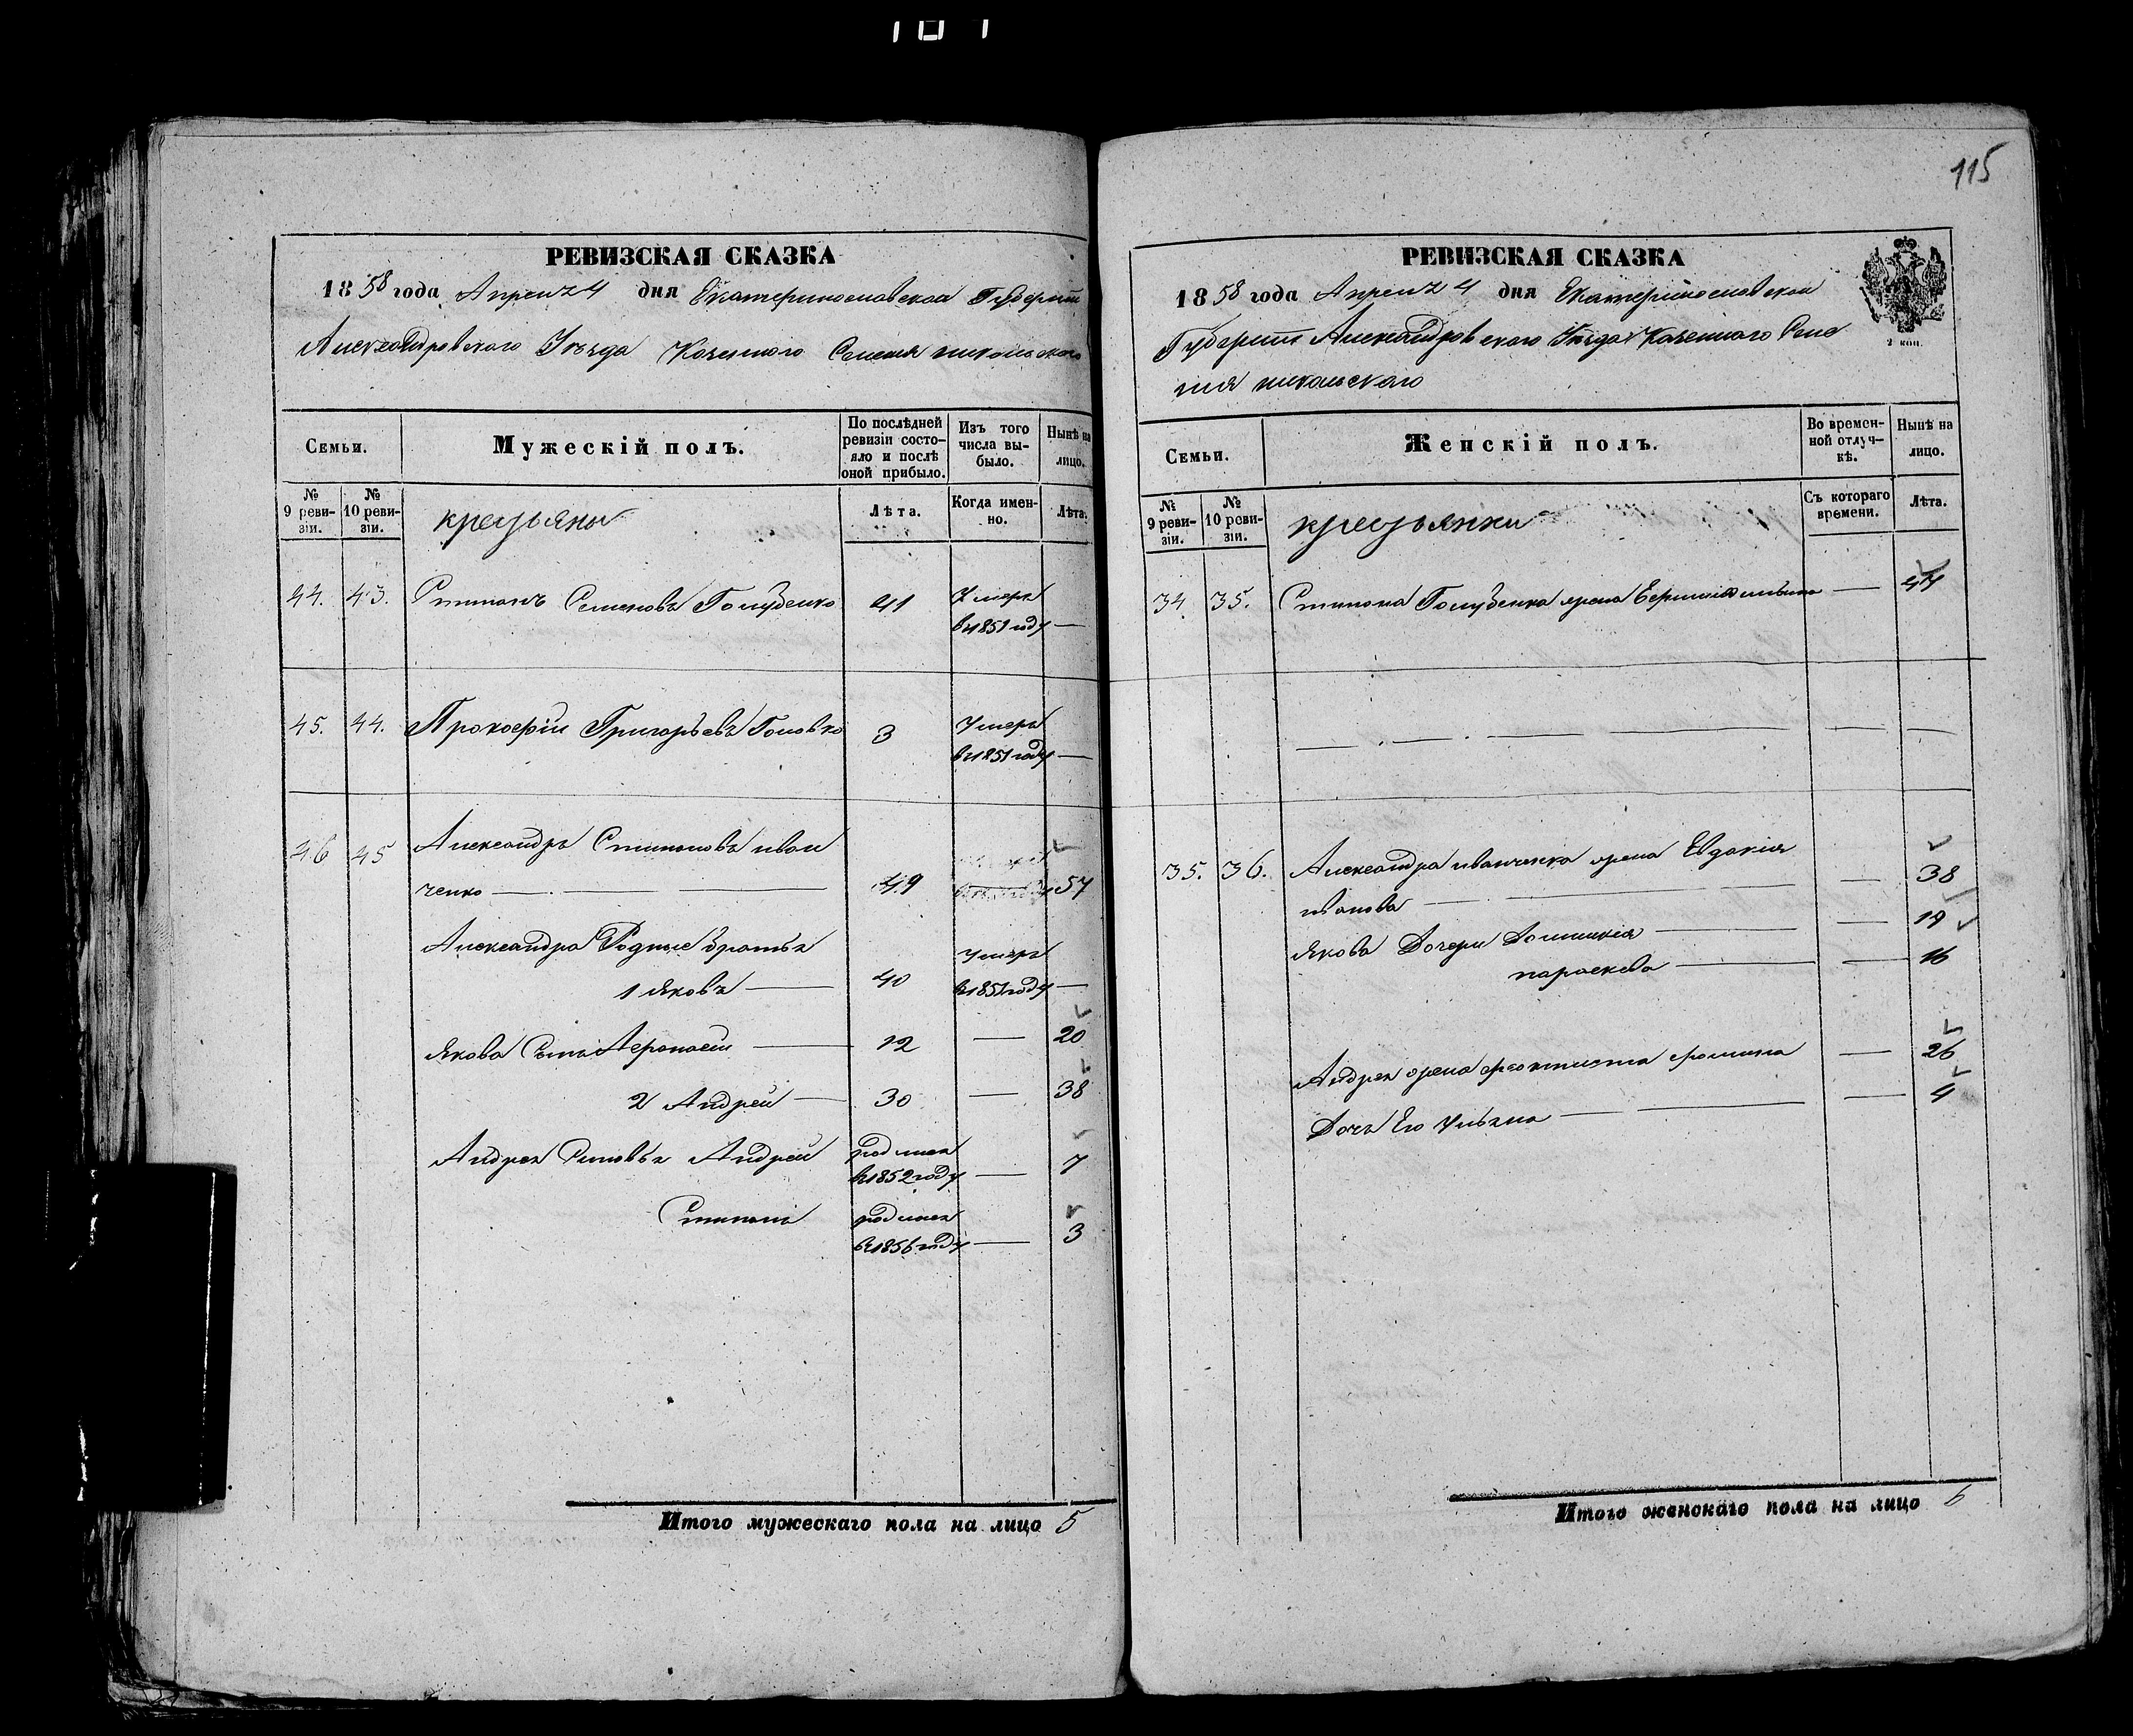 115
РЕВИЗСКАЯ СКАЗКА
1858 года Апреля 4 дня Екатеринославской Губернии
Александровского Уезда Казенного Селения Никольского
Семьи.
Мужескій полъ.
По послѣдней ревизіи состояло и послѣ оной прибыло.
Изъ того числа выбыло.
Нынѣ на лицо.
№ 9 ревизіи.
№ 10 ревизіи.
крестьяны
Лѣта.
Когда именно.
Лѣта.
44. 43. Стипанъ Семеновъ Голубенко 41 Умеръ
в 1851 году —
45. 44. Прокофій Григорьевъ Головко 3 Умеръ
в 1851 году —
46 45 Александръ Стипановъ иван
ченко — 49 — 57
Александра Родные братья
1 Яковъ — 40 умеръ
в 1851 году —
Якова Сынъ Афанасий — 12 — 20
2 Андрей — 30 — 38
Андрея Синовья Андрей родился
в 1852 году — 7
Стипанъ родился
в 1856 году — 3
Итого мужескаго пола на лицо 5
РЕВИЗСКАЯ СКАЗКА
1858 года Апреля 4 дня Екатеринославской
Губернии Александровского Уезда Казенного Селе
ния никольского
2 коп.
Семьи.
Женскій полъ.
Во временной отлучкѣ.
Нынѣ на лицо.
№ 9 ревизіи.
№ 10 ревизіи.
крестьянки
Съ котораго времени.
Лѣта.
34 35. Стипана Голубенка жена — 47
— . — . — — — —
35. 36. Александра иванченка жена Евдакия
иванова — — 38
Якова Дочери Домникия — — 19
параскева — — 16
Андрея жена феоктиста фомина — 26
Дочь Его Ульяна — — 4
Итого женскаго пола на лицо 6